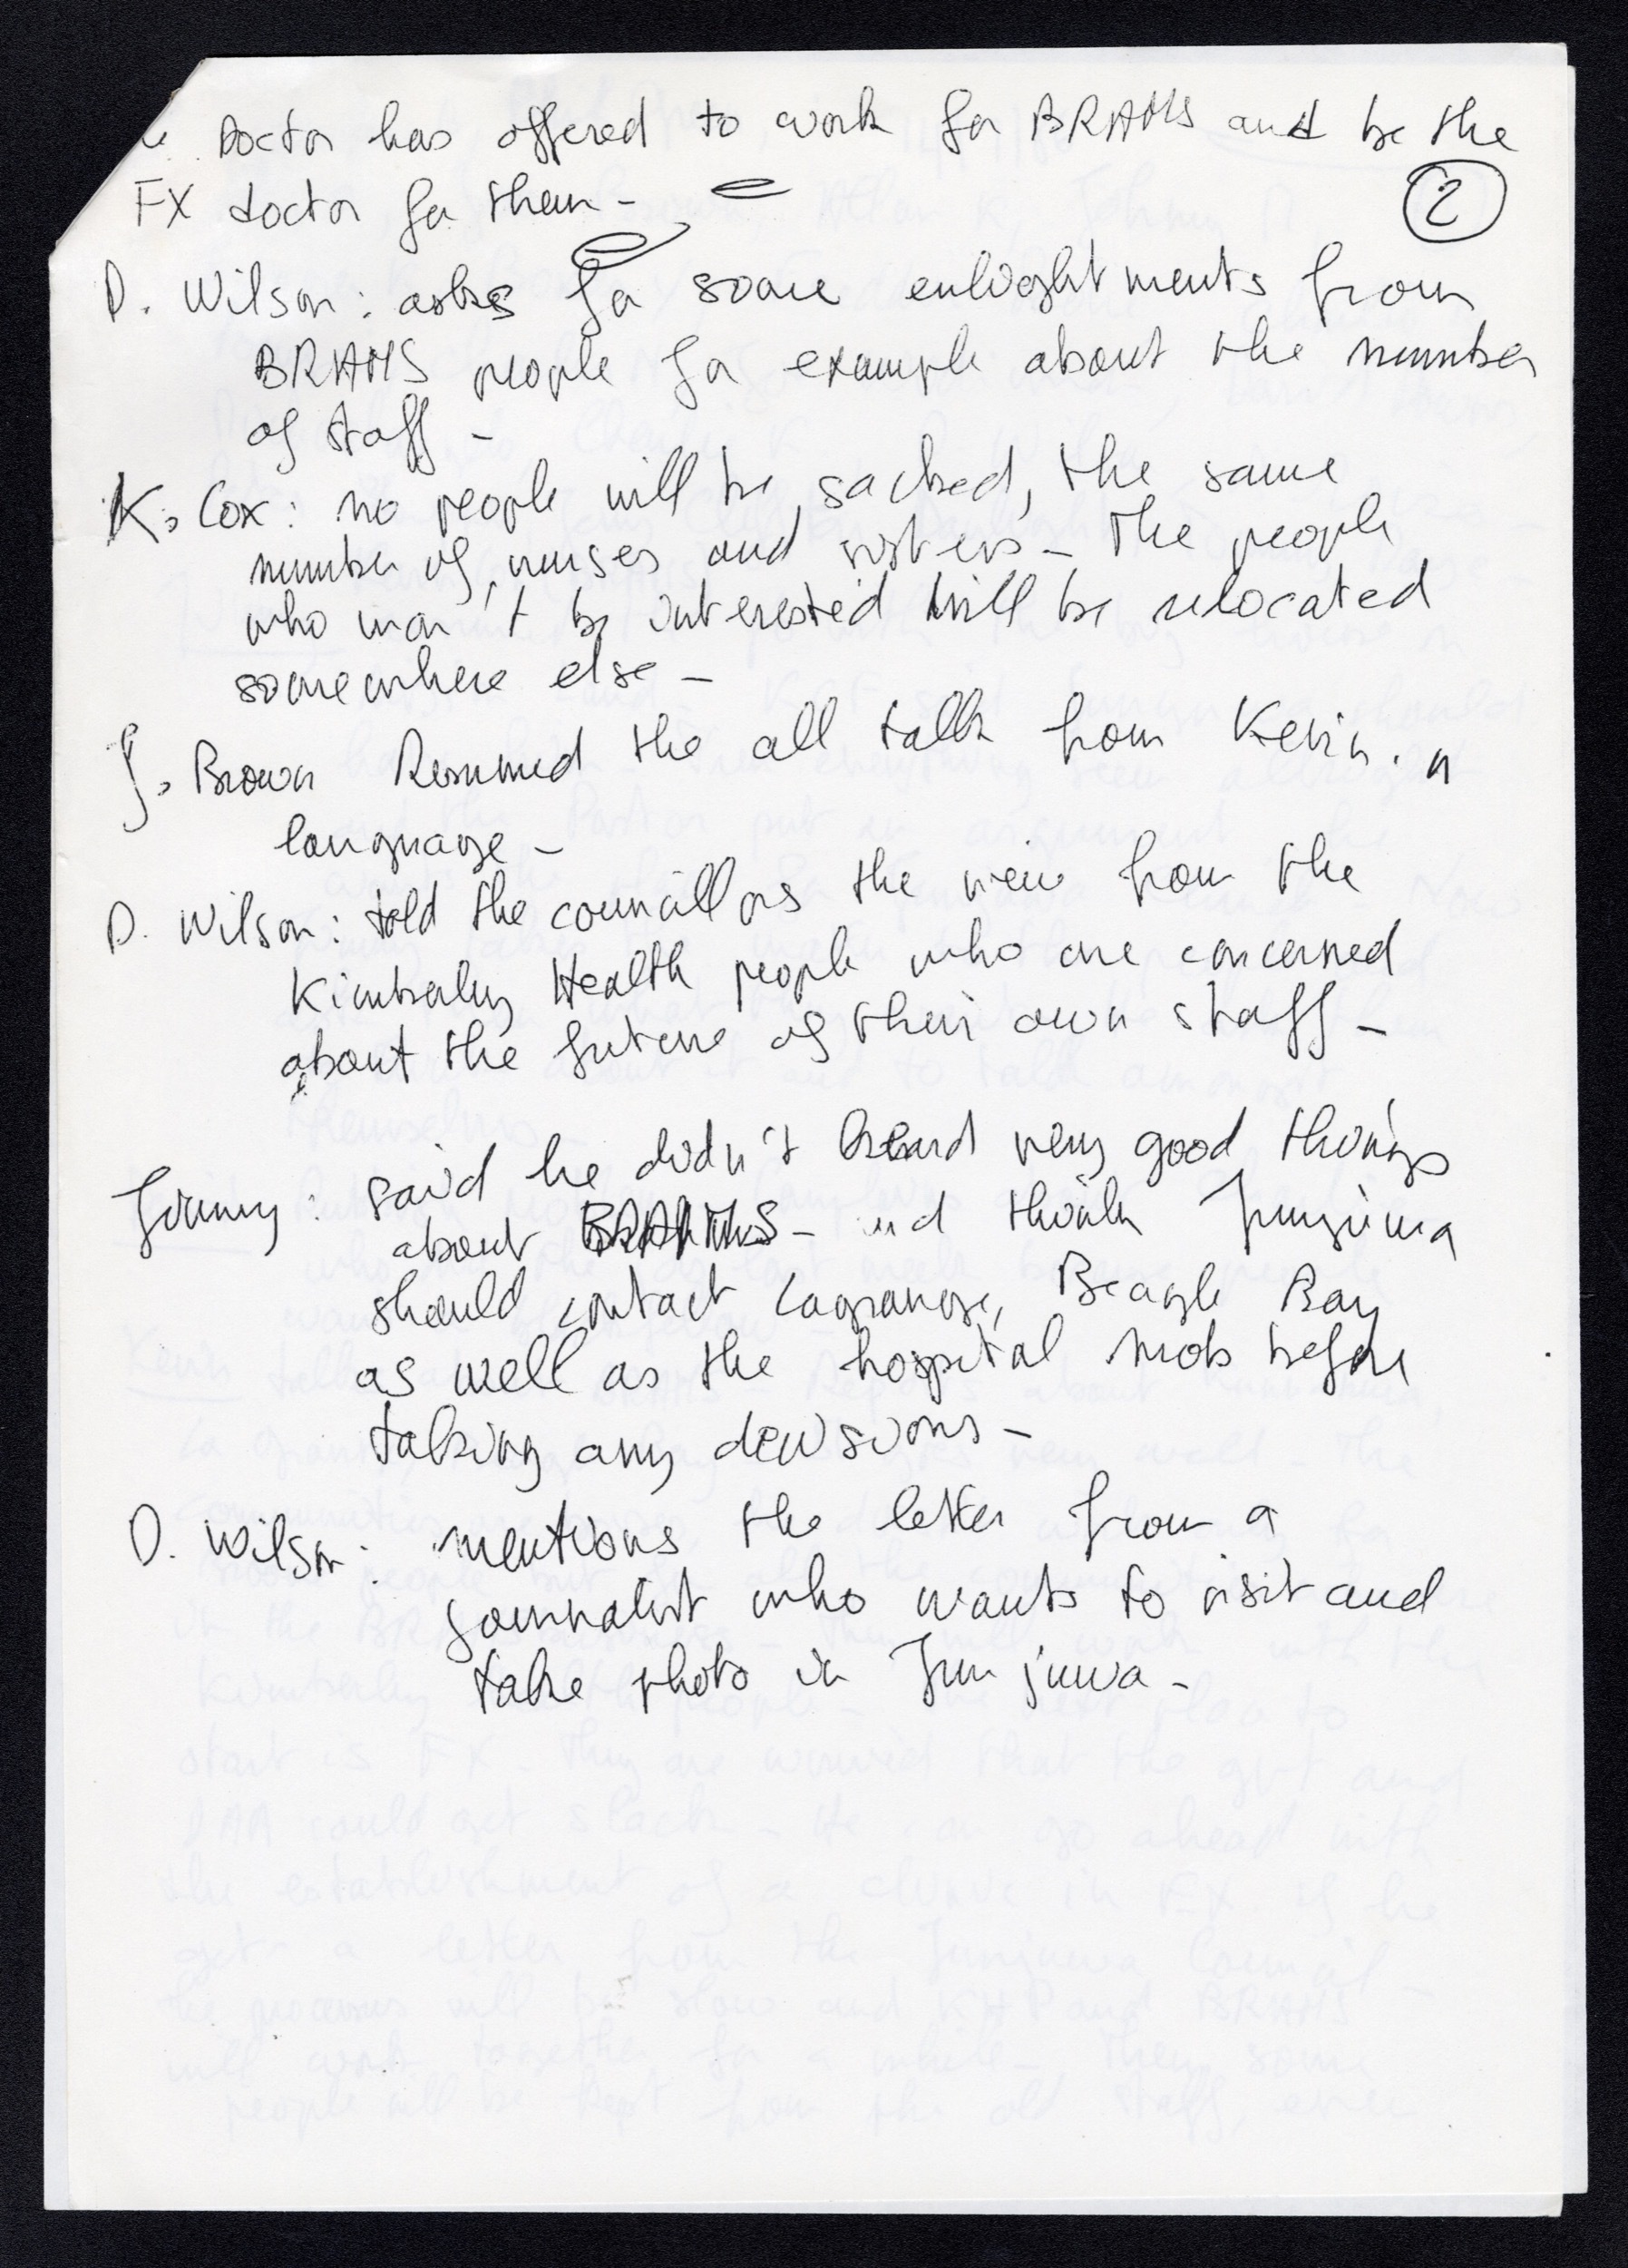 Doctor has offered to work for BRAMS and be the
FX doctor for them -
2
D. Wilson: asks for some enlightments from
BRAMS people for example about the number
of staff -
K. Cox: no people will be sacked, the same
number of nurses and sisters - The people
who won't be interested will be relocated
somewhere else -
J. Brown Resumed the all talk from Kevin. in
language -
D. Wilson: told the councillors the view from the
Kimberley Health people who are concerned
about the future of their own staff -
Jimmy: said he didn't heard very good things
about BRAMS - and think Junjuwa
should contact Lagrange, Beagle Bay
as well as the hospital mob before
taking any decisions -
D. Wilson: mentions the letter from a
journalist who wants to visit and
take photo in Junjuwa -